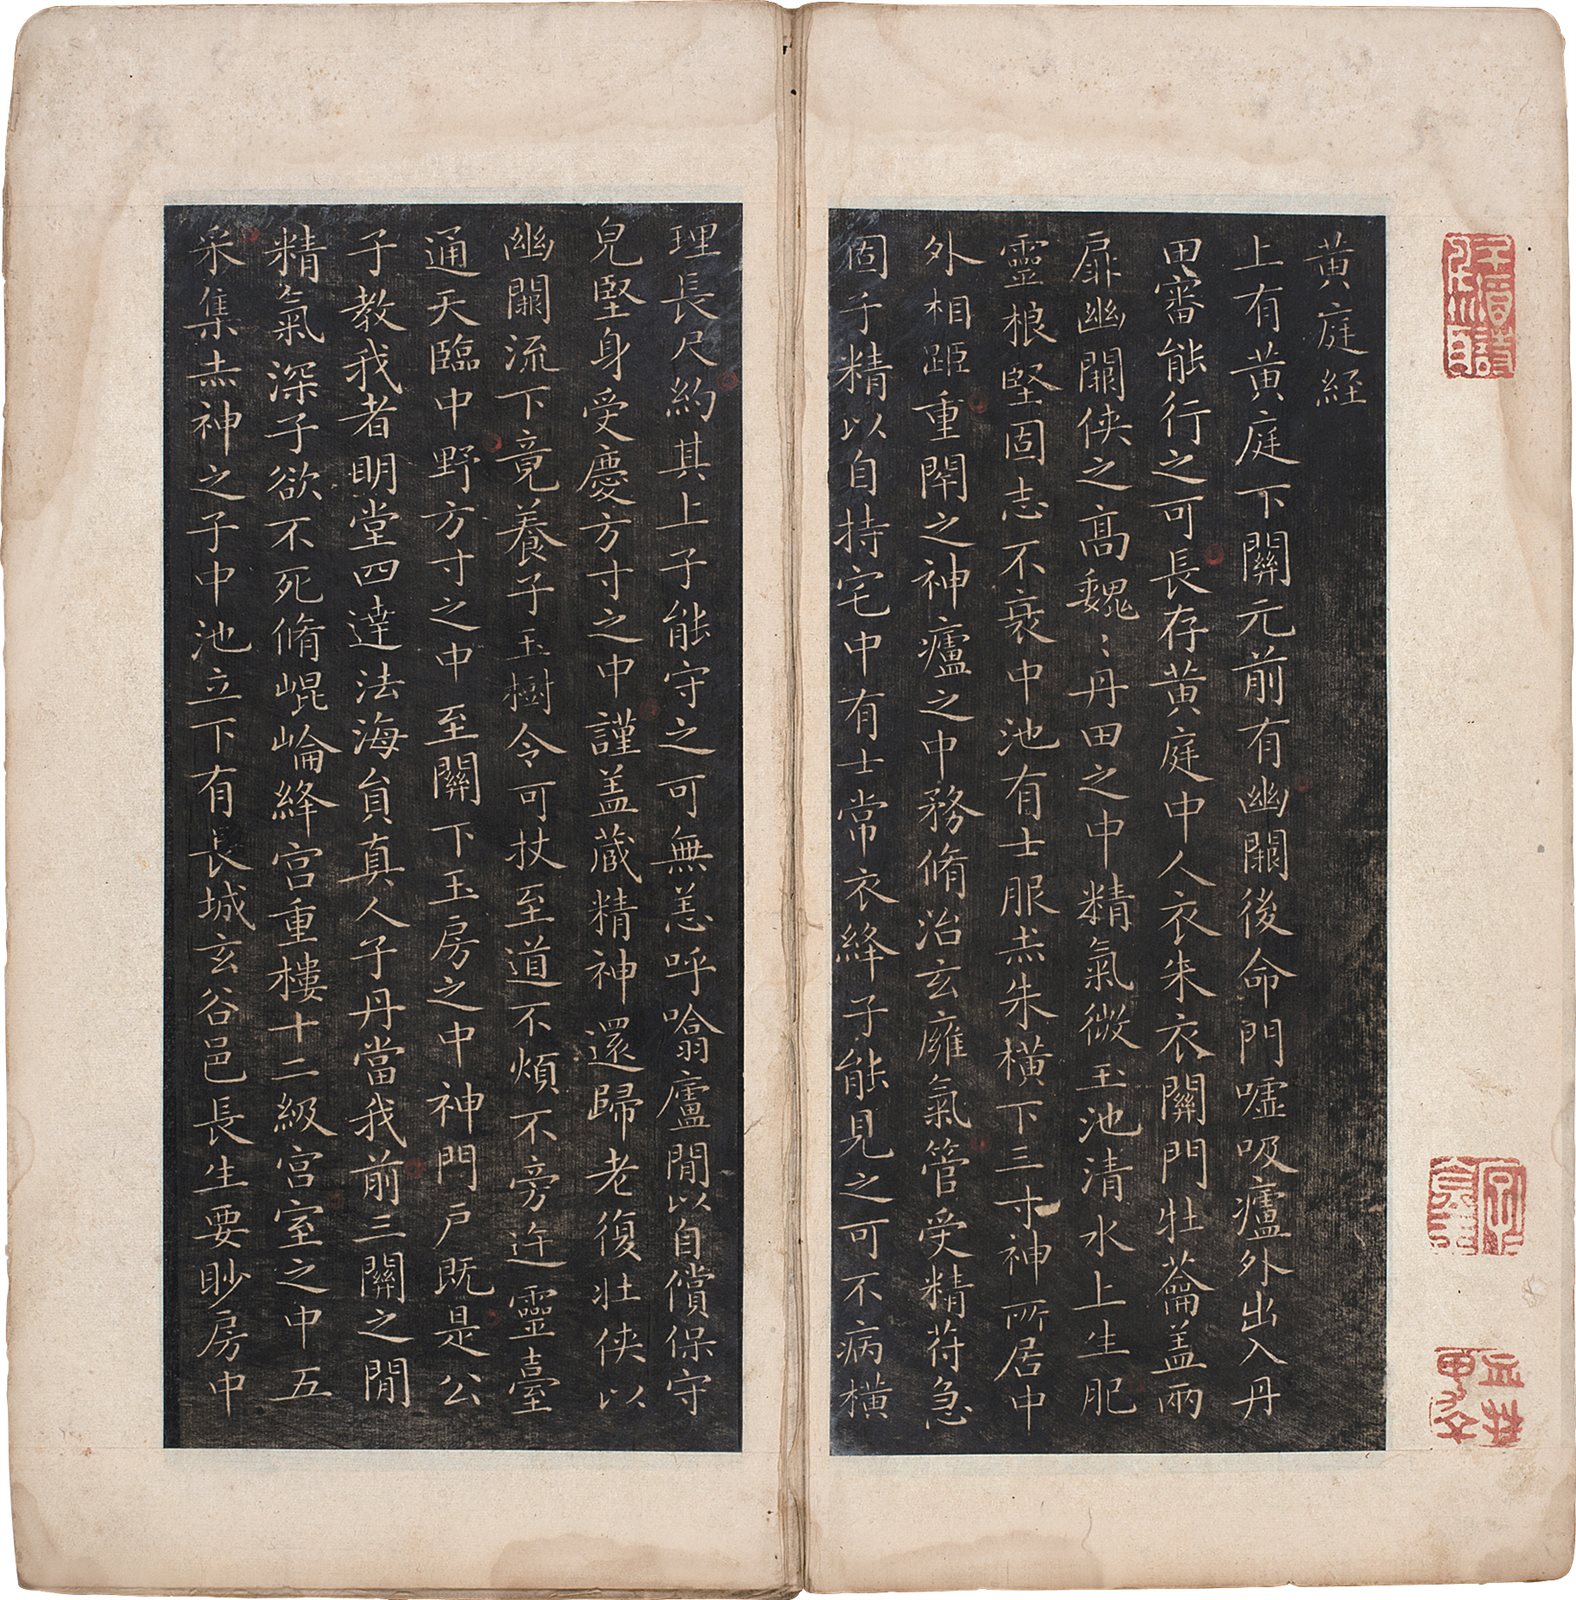 黃庭經
上有黃庭下關元前有幽闕後命門噓吸廬外出入丹
田審能行之可長存黃庭中人衣朱衣關門壯蘥盖兩
扉幽闕俠之高魏〻丹田之中精氣微玉池清水上生肥
靈根堅固志不衰中池有士服赤朱橫下三寸神所居中
外相距重閇之神廬之中務脩治玄㢕氣管受精苻急
固子精以自持宅中有士常衣絳子能見之可不病橫
理長尺約其上子能守之可無恙呼噏廬閒以自償保守
皃堅身受慶方寸之中謹盖藏精神還歸老復壯俠以
幽闕流下竟養子玉樹令可杖至道不煩不旁迕靈臺
通天臨中野方寸之中至關下玉房之中神門戶既是公
子教我者明堂四達法海員真人子丹當我前三關之閒
精氣深子欲不死脩崐崘絳宮重樓十二級宮室之中五
采集赤神之子中池立下有長城玄谷邑長生要眇房中